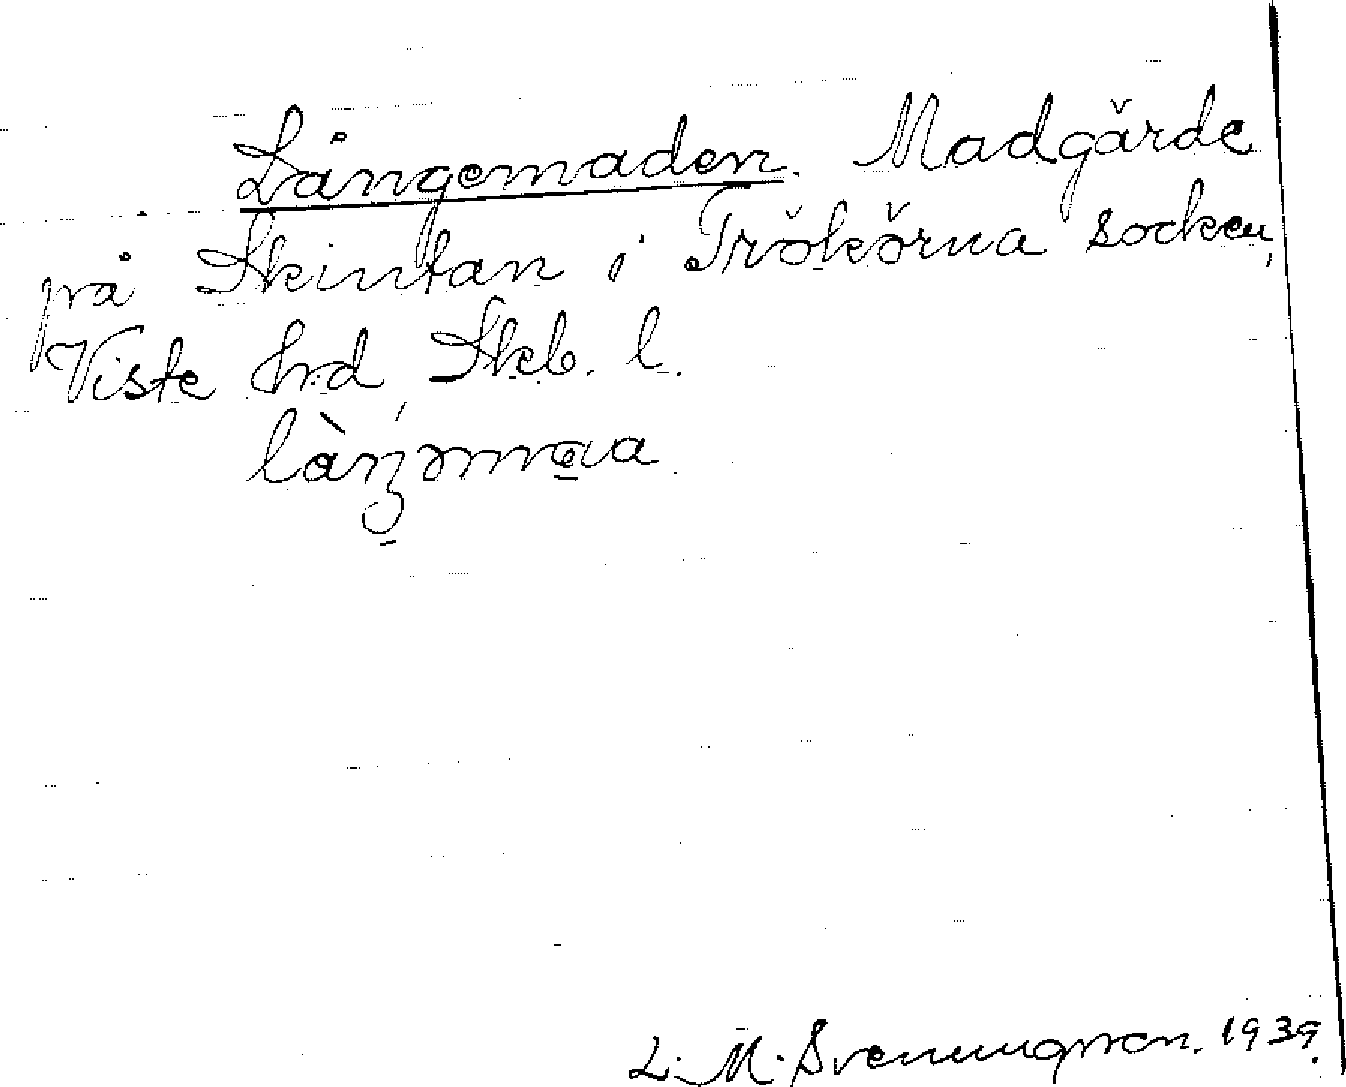 Långemaden. Madgärde
på Skintan i Trökörna socken,
Viste hrd, Skb. l.
L. M. Svenungsson. 1939.